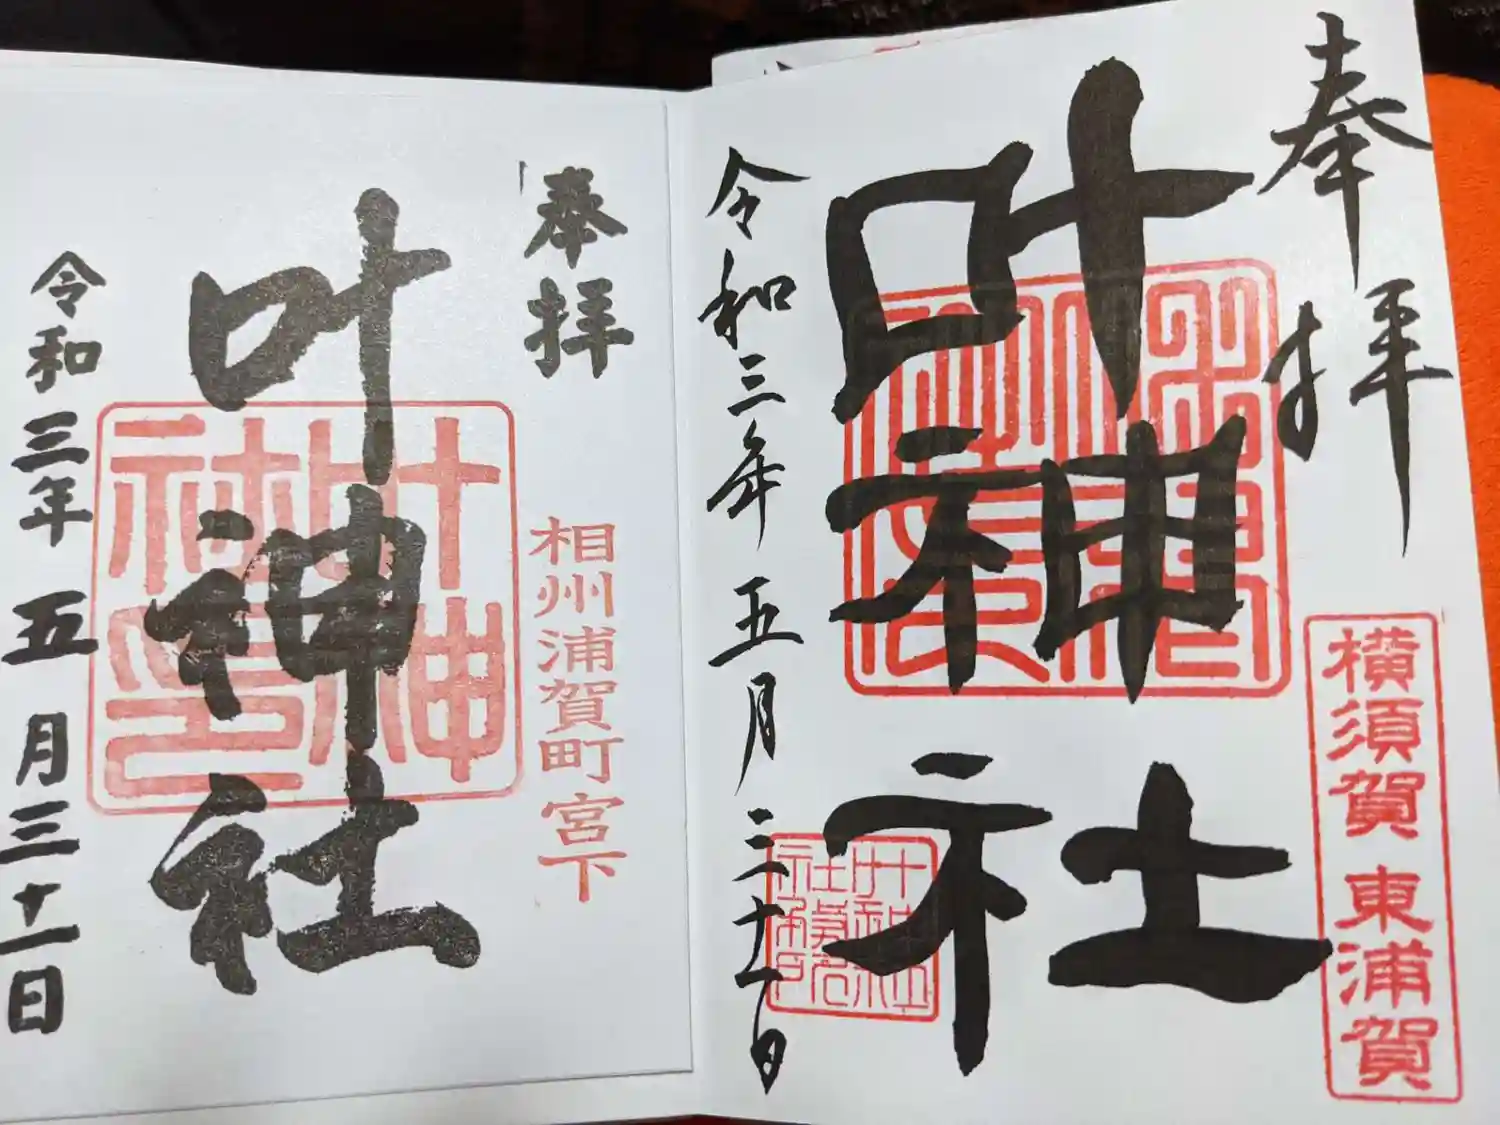 奉拝
叶神社
横須賀 東浦賀
令和三年 五月三十一日
叶神社社務所
奉拝
叶神社
相州浦賀町宮下
叶神社印
令和三年 五月三十一日